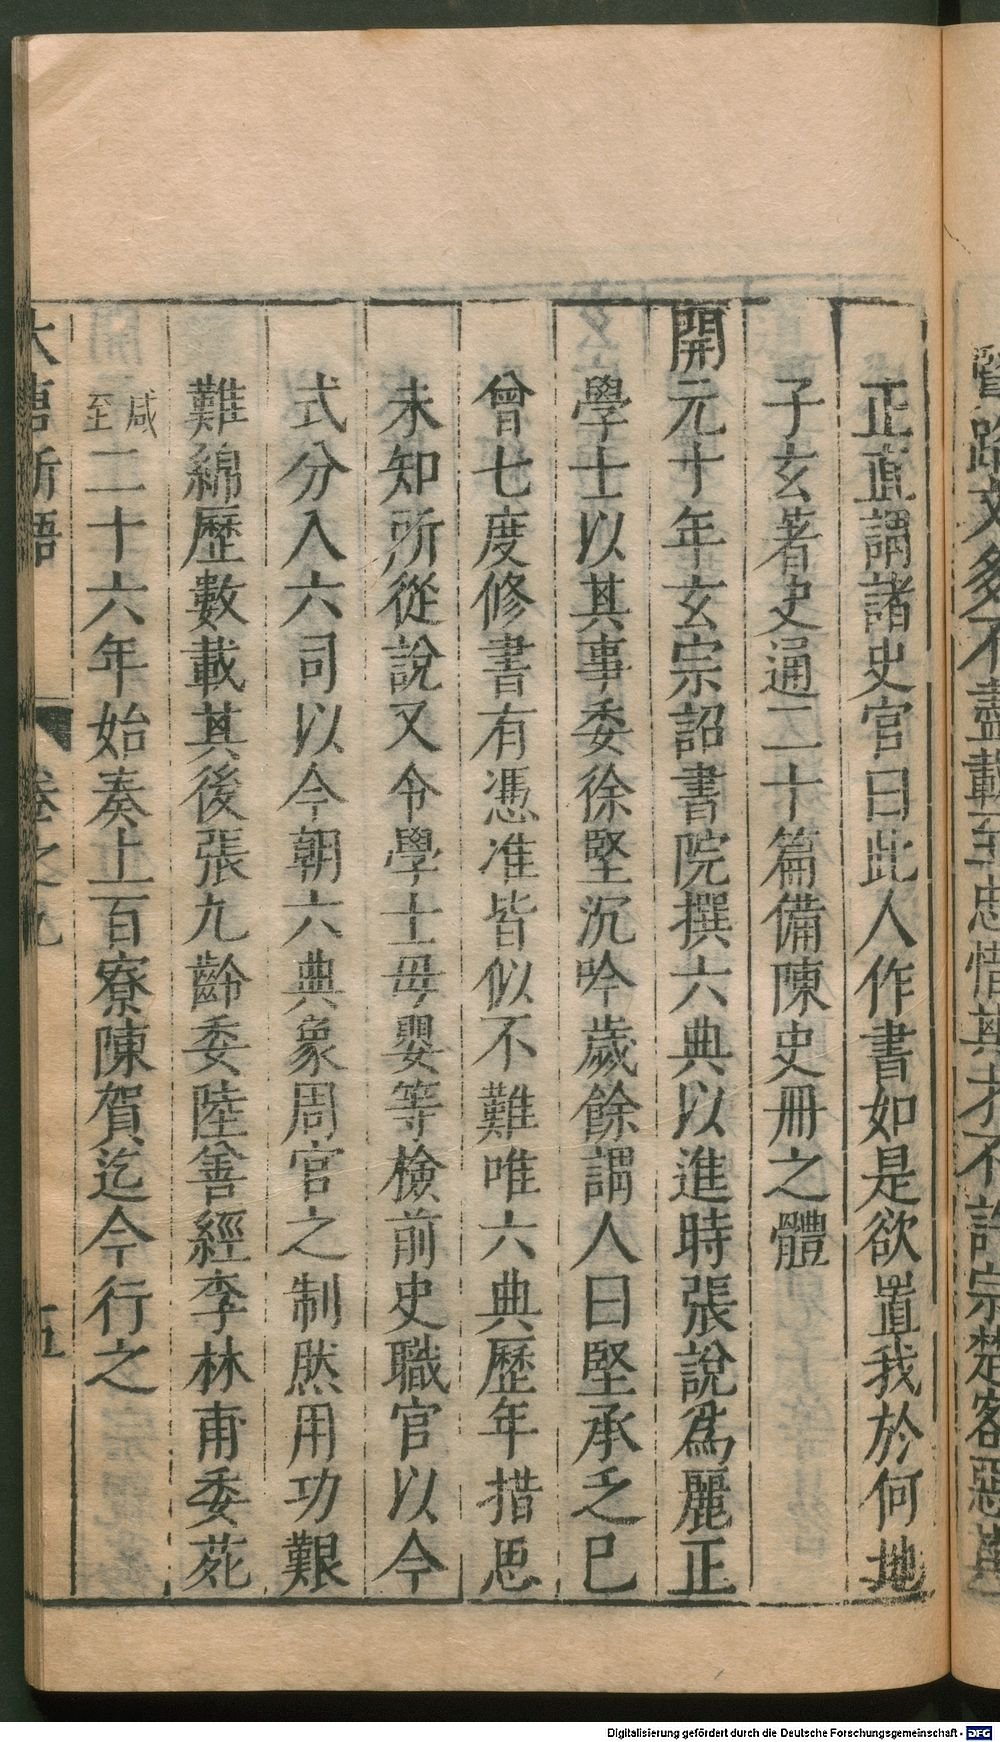 正直謂諸史官曰此人作書如是欲置我於何地
子玄著史通二十篇備陳史冊之體
開元十年玄宗詔書院撰六典以進時張說為麗正
學士以其事委徐堅沉吟歲餘謂人曰堅承乏已
曾七度修書有憑准皆似不難唯六典歷年措思
未知所從說又令學士毋嬰等檢前史職官以今
式分入六司以今朝六典象周官之制然用功艱
難綿歷數載其後張九齡委陸善經李林甫委苑
咸至二十六年始奏上百寮陳賀迄今行之
大唐新語
卷之九
五
Digitalisierung gefördert durch die Deutsche Forschungsgemeinschaft - DFG